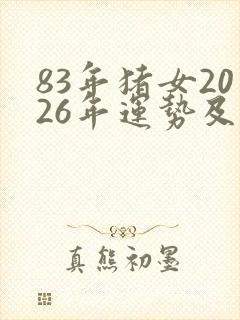 83年猪女20
26年運势及
真熊初墨